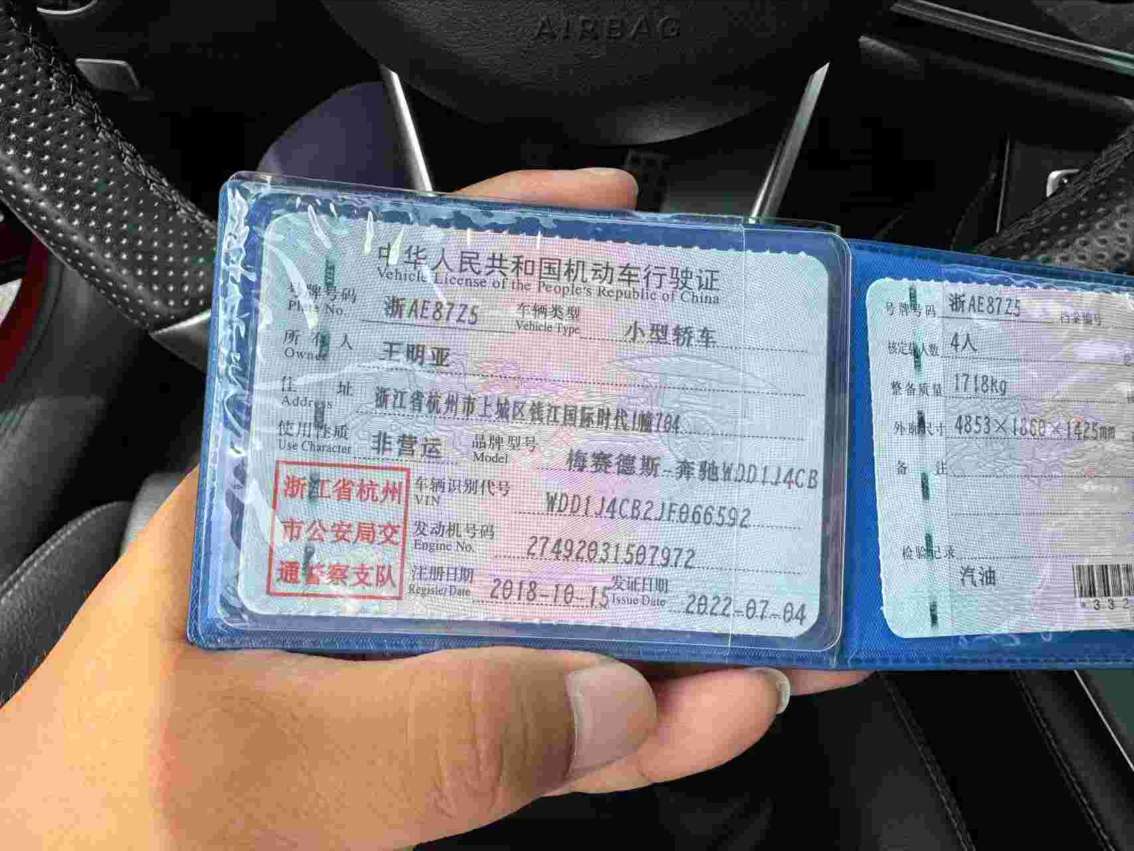 AIRBAG
中华人民共和国机动车行驶证
Vehicle License of the People's Republic of China
号牌号码 浙AE87Z5 车辆类型 小型轿车
Plate No. Vehicle Type
所有人 王明亚
Owner
住址 浙江省杭州市上城区钱江国际时代1幢704
Address
使用性质 非营运 品牌型号 梅赛德斯-奔驰WDD1J4CB
Use Character Model
浙江省杭州
市公安局交
通警察支队
车辆识别代号 WDD1J4CB2JF066592
VIN
发动机号码 27492031507972
Engine No.
注册日期 2018-10-15 发证日期 2022-07-04
Register Date Issue Date
号牌号码 浙AE87Z5 档案编号
核定载人数 4人
整备质量 1718kg
外廓尺寸 4853×1860×1425mm
备注
检验记录
汽油
*332